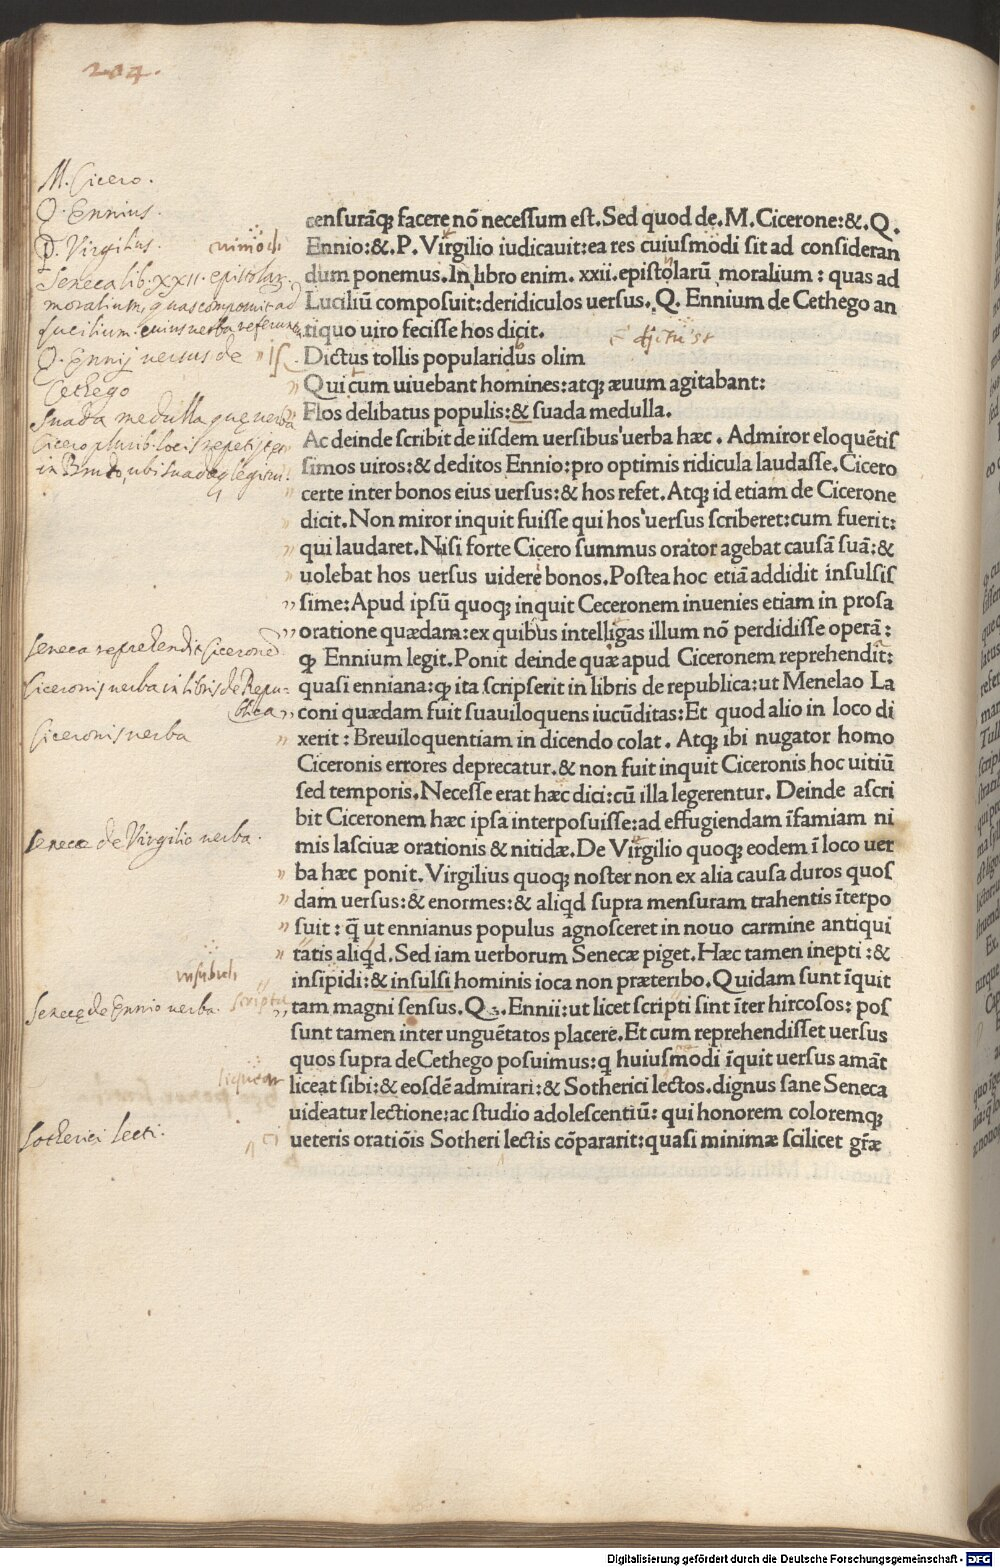 204.
M. Cicero.
Q. Ennius.
P. Virgilius.
Seneca lib. XXII. epistolar.
moralium, quas composuit ad
Lucilium cuius verba referunt.
Q. Ennij versus de
Cethego
Suada medulla
Cicero plurib. locis
in Bruto, ubi
Seneca reprehendit Cicerone
Ciceronis verba in libris de Repu-
blica
Ciceronis verba
Senecæ de Virgilio verba.
Senecę de Ennio verba.
Sotherici lecti.
censurāq; facere nō necessum est. Sed quod de. M. Cicerone: &. Q.
Ennio: &. P. Virgilio iudicauit: ea res cuiusmodi sit ad consideran
dum ponemus. In libro enim. xxii. epistolarū moralium: quas ad
Luciliū composuit: deridiculos uersus. Q. Ennium de Cethego an
tiquo uiro fecisse hos dicit.
Dictus tollis popularidus olim
Qui cum uiuebant homines: atq; æuum agitabant:
Flos delibatus populis: & suada medulla.
Ac deinde scribit de iisdem uersibus uerba hæc. Admiror eloquētis
simos uiros: & deditos Ennio: pro optimis ridicula laudasse. Cicero
certe inter bonos eius uersus: & hos refet. Atq; id etiam de Cicerone
dicit. Non miror inquit fuisse qui hos uersus scriberet: cum fuerit:
qui laudaret. Nisi forte Cicero summus orator agebat causā suā: &
uolebat hos uersus uidere bonos. Postea hoc etiā addidit insulsis
sime: Apud ipsū quoq; inquit Ceceronem inuenies etiam in prosa
oratione quædam: ex quibus intelligas illum nō perdidisse operā:
ꝙ Ennium legit. Ponit deinde quæ apud Ciceronem reprehendīt:
quasi enniana: ꝙ ita scripserit in libris de republica: ut Menelao La
coni quædam fuit suauiloquens iucūditas: Et quod alio in loco di
xerit: Breuiloquentiam in dicendo colat. Atq; ibi nugator homo
Ciceronis errores deprecatur. & non fuit inquit Ciceronis hoc uitiū
sed temporis. Necesse erat hæc dici: cū illa legerentur. Deinde ascri
bit Ciceronem hæc ipsa interposuisse: ad effugiendam īfamiam ni
mis lasciuæ orationis & nitidæ. De Virgilio quoq; eodem ī loco uer
ba hæc ponit. Virgilius quoq; noster non ex alia causa duros quos
dam uersus: & enormes: & aliqd supra mensuram trahentis īterpo
suit: q̄ ut ennianus populus agnosceret in nouo carmine antiqui
tatis aliqd. Sed iam uerborum Senecæ piget. Hæc tamen inepti: &
insipidi: & insulsi hominis ioca non præteribo. Quidam sunt īquit
tam magni sensus. Q. Ennii: ut licet scripti sint īter hircosos: pos
sunt tamen inter unguētatos placere. Et cum reprehendisset uersus
quos supra deCethego posuimus: q huiusmodi īquit uersus amāt
liceat sibi: & eosdē admirari: & Sotherici lectos. dignus sane Seneca
uideatur lectione: ac studio adolescentiū: qui honorem coloremq;
ueteris oratiōis Sotheri lectis cōpararit: quasi minimæ scilicet gr̄æ
Digitalisierung gefördert durch die Deutsche Forschungsgemeinschaft - DFG